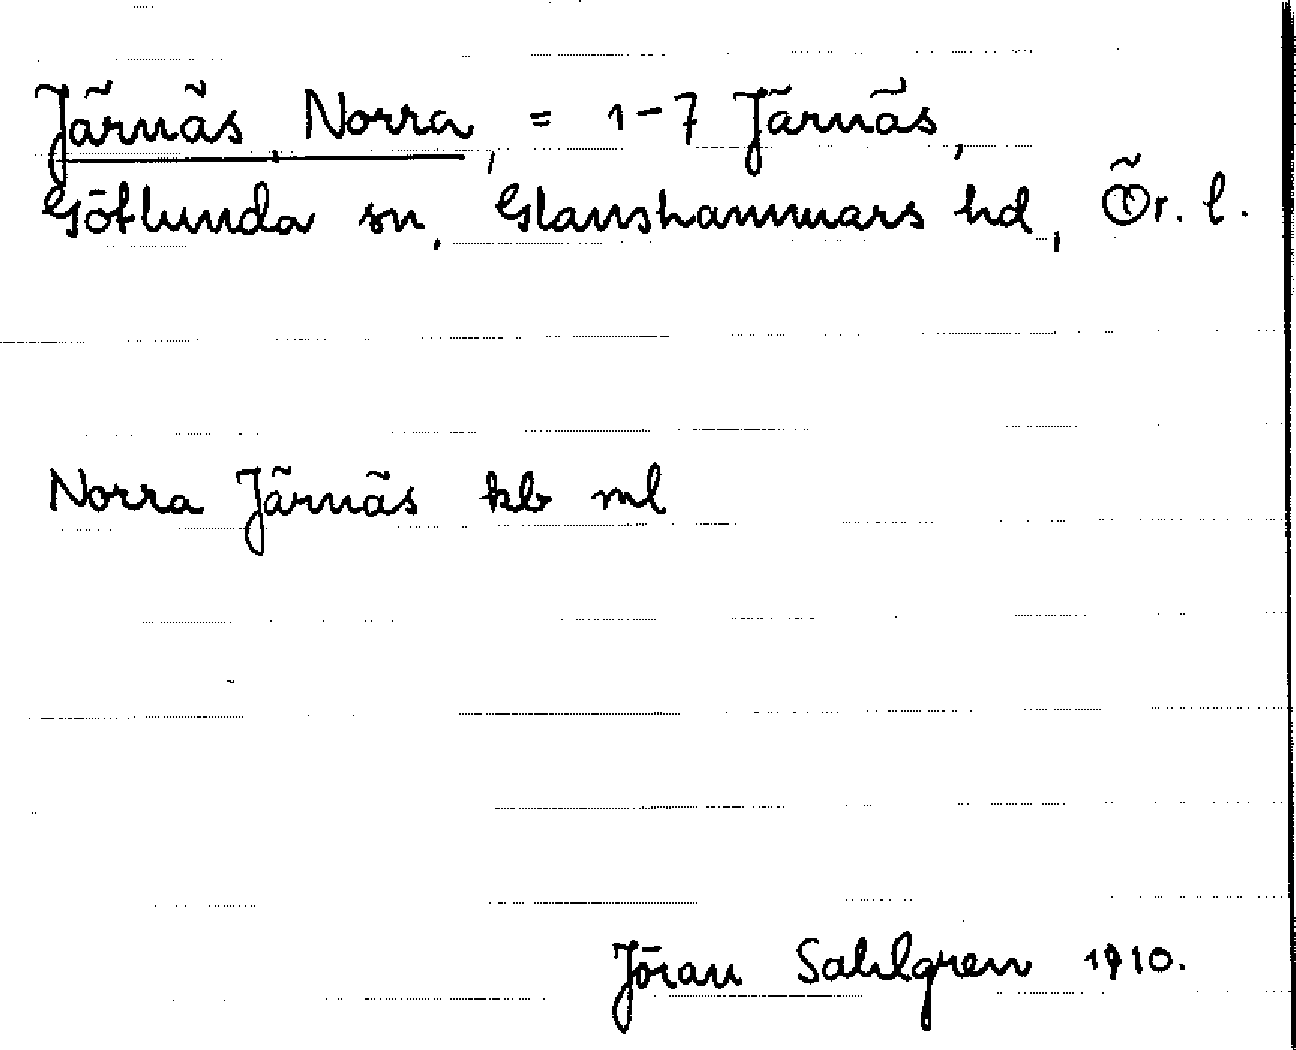 Järnäs, Norra, = 1-7 Järnäs,
Götlunda sn, Glanshammars hd, Ör. l.
Norra Järnäs kb ml
Jöran Sahlgren 1910.